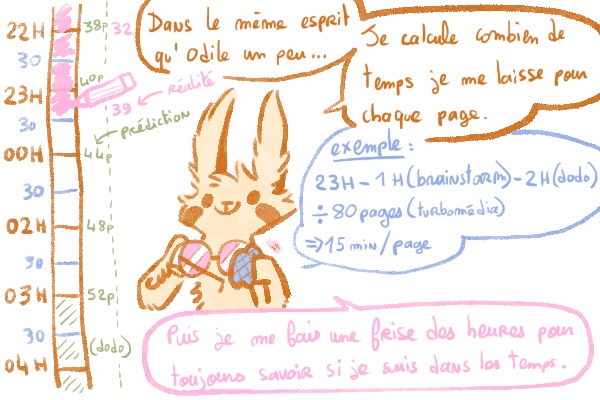 Dans le même esprit
qu'Odile un peu...
Je calcule combien de
temps je me laisse pour
chaque page.
exemple :
23H - 1H (brainstorm) - 2H (dodo)
÷ 80 pages (turbomédia)
⇒ 15 min/page
Puis je me fais une frise des heures pour
toujours savoir si je suis dans les temps.
22H 38p 32
30
40p réalité
23H 39
30 prédiction
00H 44p
30
02H 48p
30
03H 52p
30 (dodo)
04H